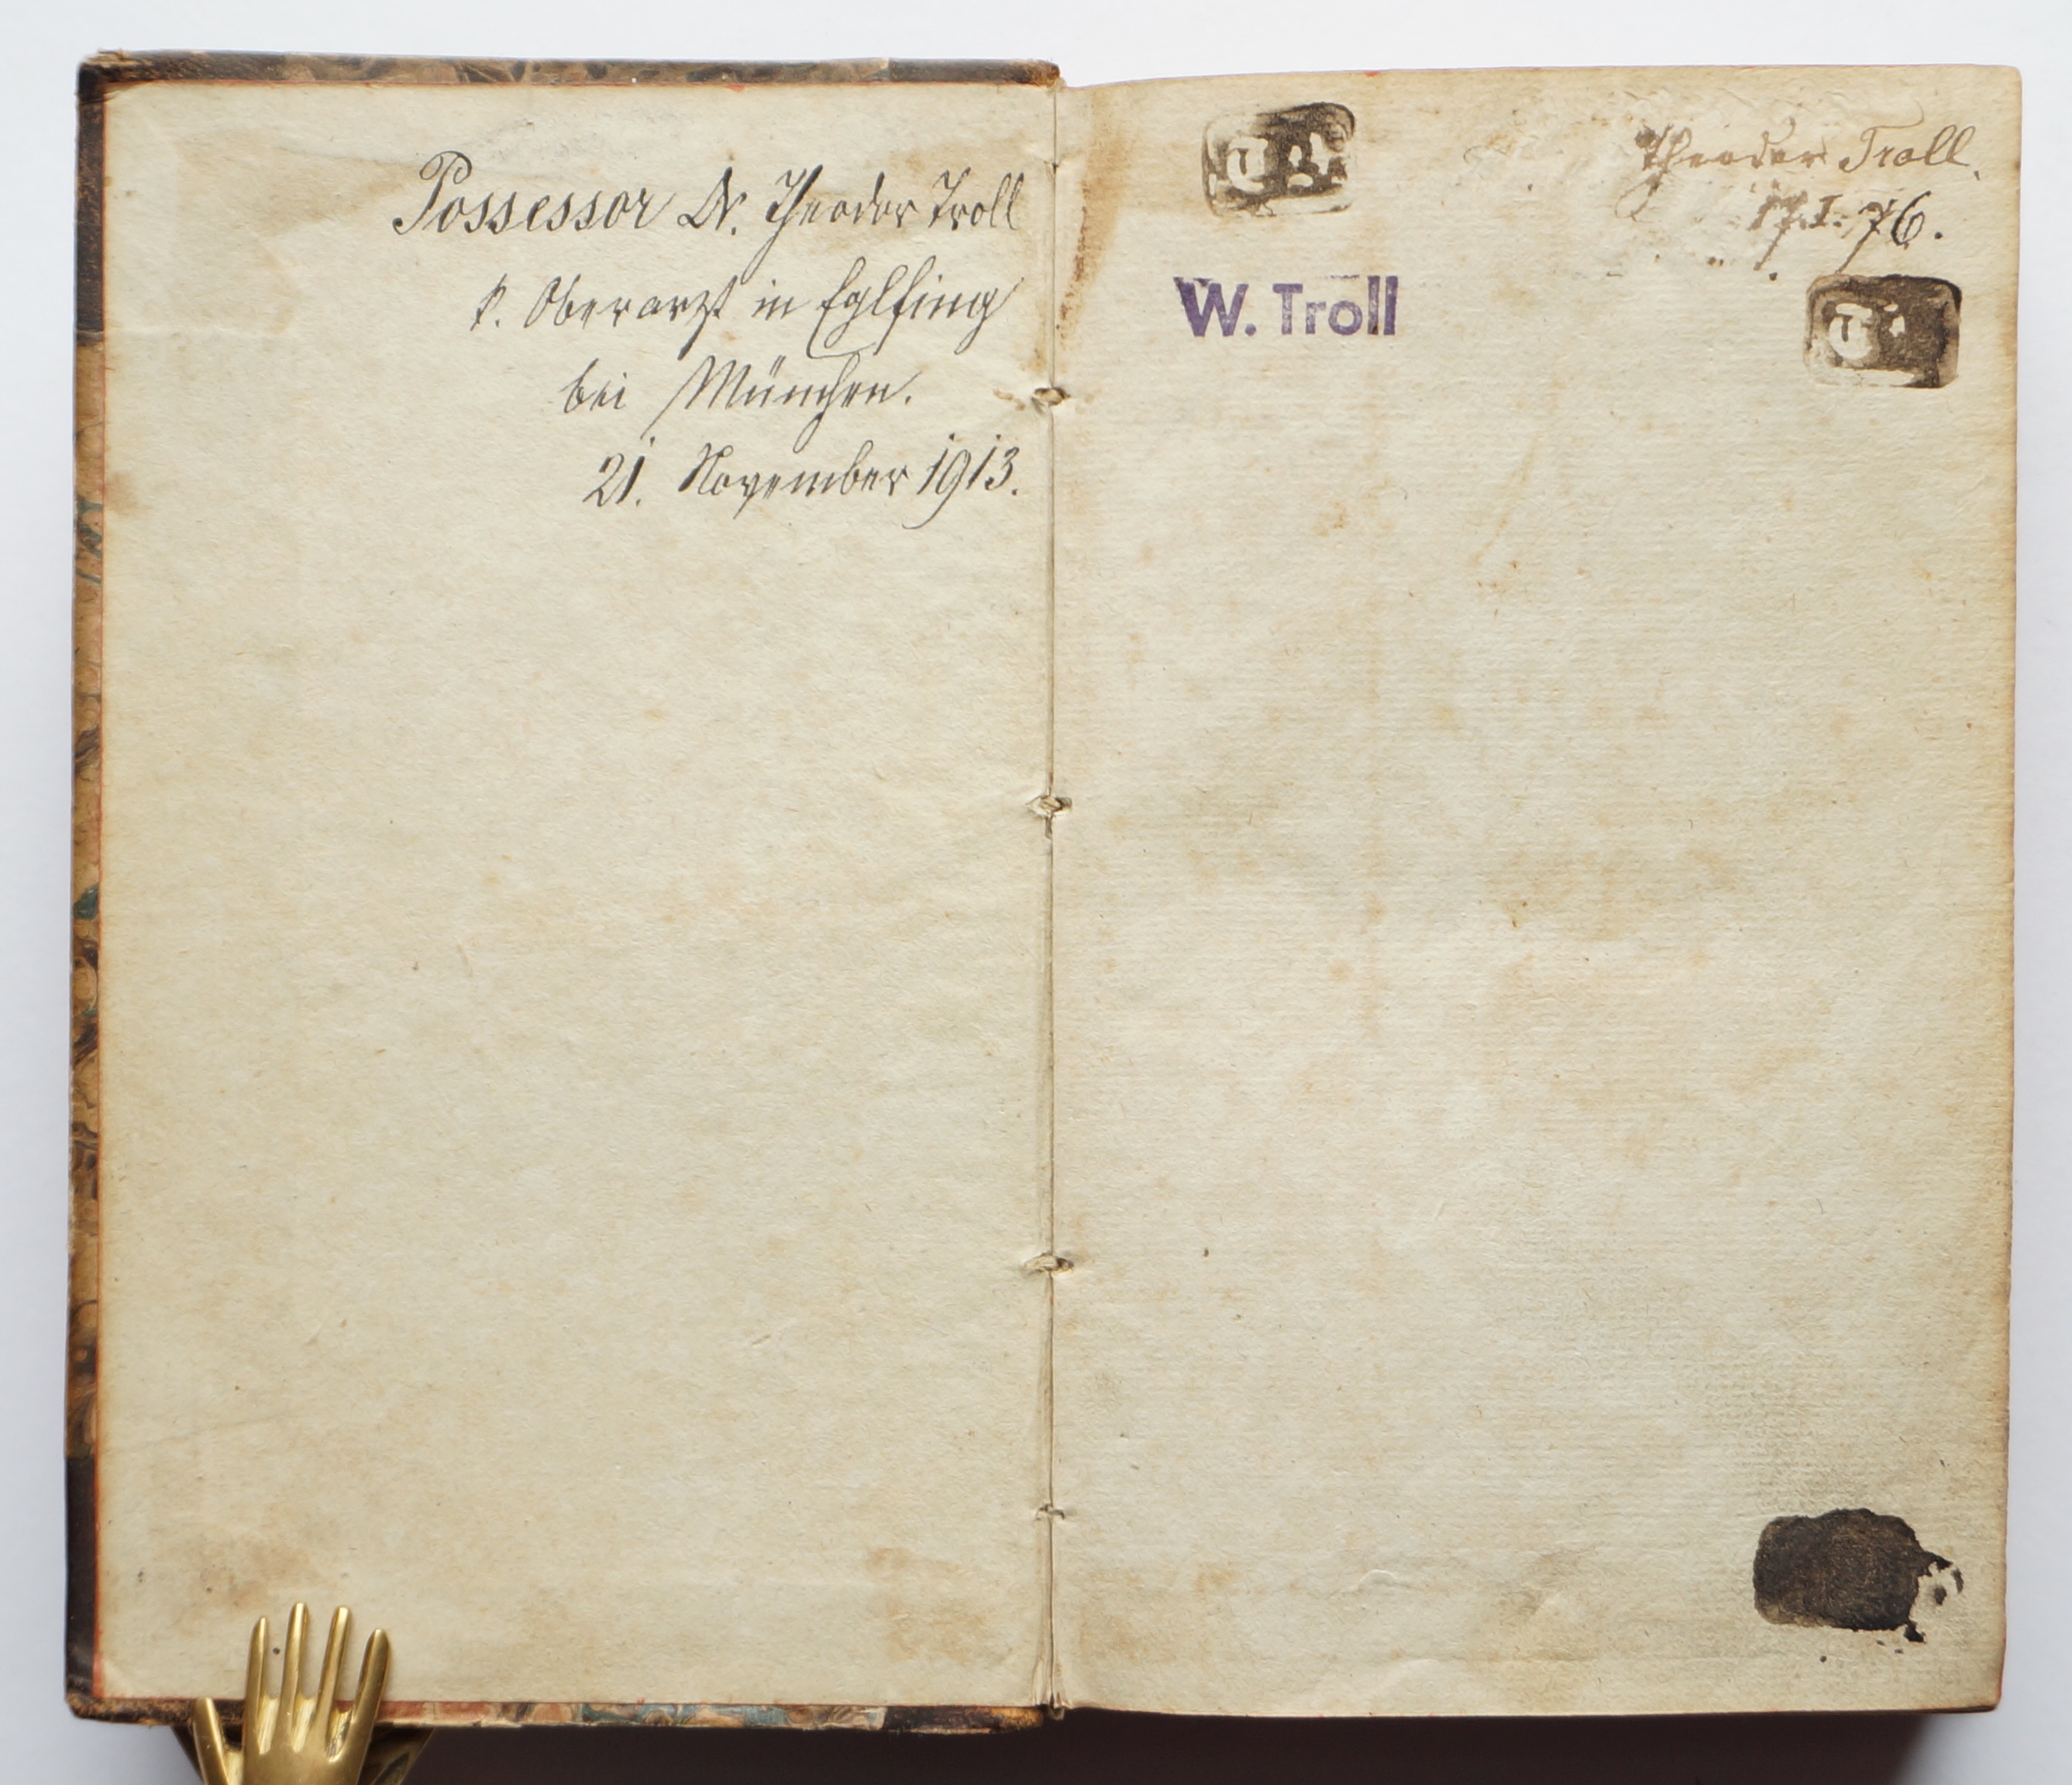 Possessor Dr. Theodor Troll
k. Oberarzt in Eglfing
bei München.
21. November 1913.
Theodor Troll.
17.I.76.
W. Troll